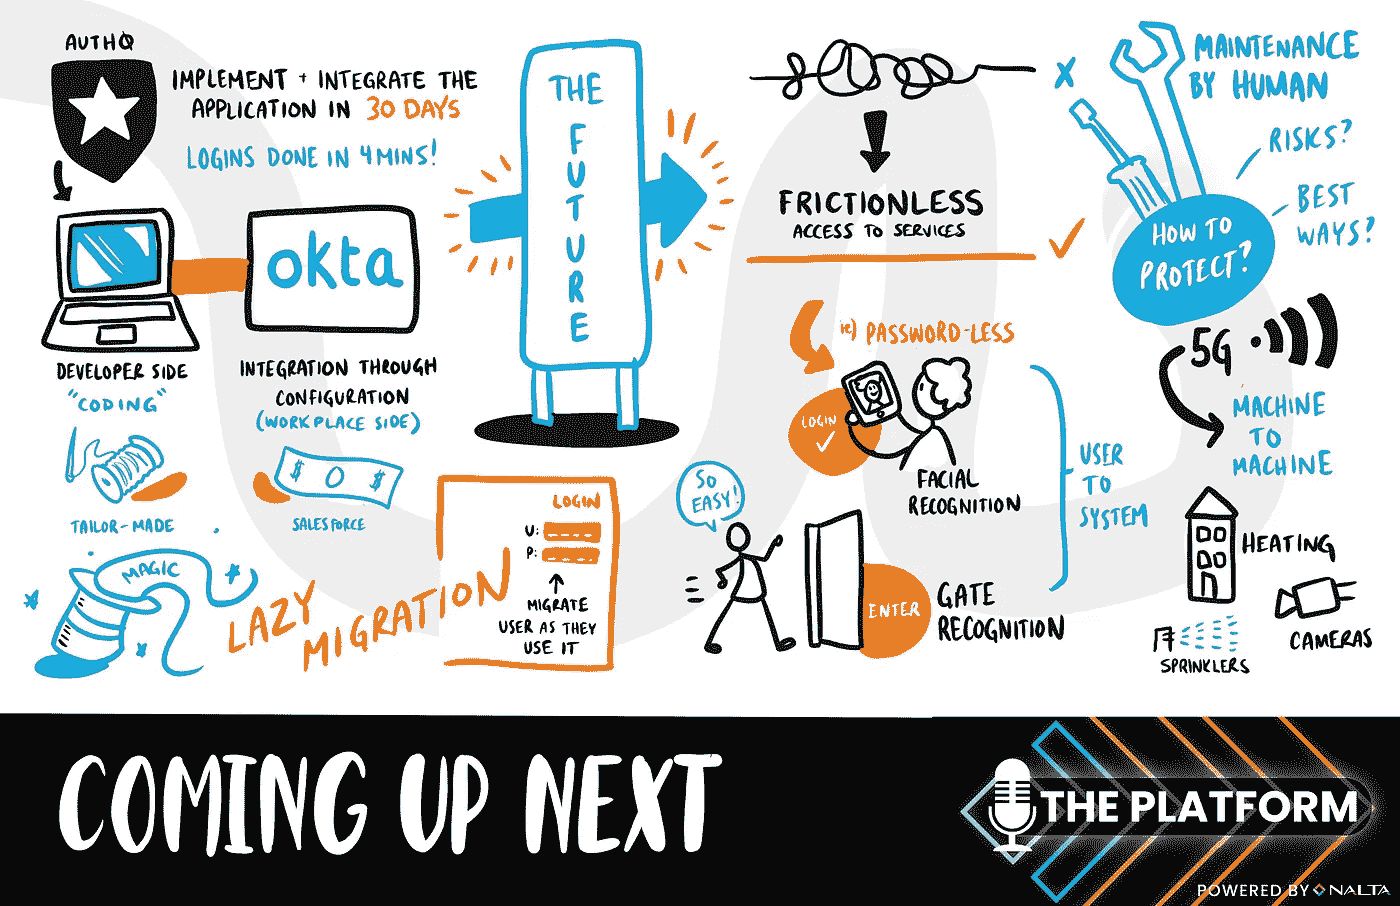 AUTH0
IMPLEMENT + INTEGRATE THE
APPLICATION IN 30 DAYS
LOGINS DONE IN 4 MINS!
okta
DEVELOPER SIDE
"CODING"
TAILOR-MADE
INTEGRATION THROUGH
CONFIGURATION
(WORKPLACE SIDE)
$ 0 $
SALESFORCE
MAGIC
LAZY
MIGRATION
LOGIN
U:
P:
MIGRATE
USER AS THEY
USE IT
THE
FUTURE
FRICTIONLESS
ACCESS TO SERVICES
ie) PASSWORD-LESS
LOGIN
FACIAL
RECOGNITION
SO
EASY!
ENTER
GATE
RECOGNITION
USER
TO
SYSTEM
MAINTENANCE
BY HUMAN
RISKS?
BEST
WAYS?
HOW TO
PROTECT?
5G
MACHINE
TO
MACHINE
HEATING
CAMERAS
SPRINKLERS
COMING UP NEXT
THE PLATFORM
POWERED BY NALTA